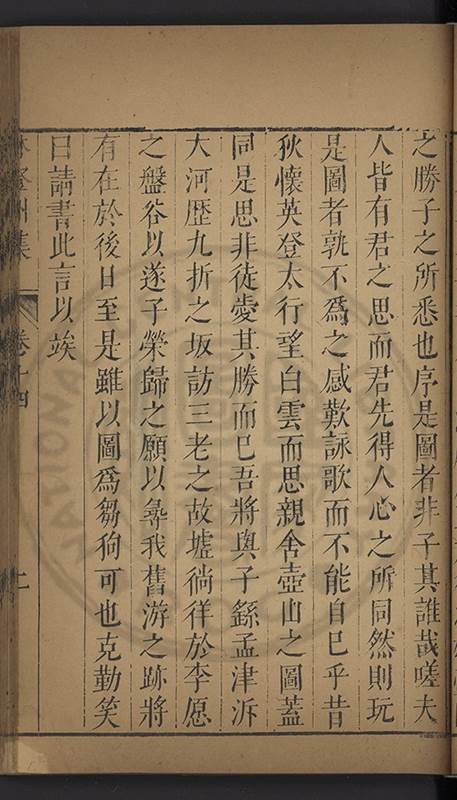 之勝子之所悉也序是圖者非子其誰哉嗟夫
人皆有君之思而君先得人心之所同然則玩
是圖者孰不爲之感歎詠歌而不能自已乎昔
狄懷英登太行望白雲而思親舍壺山之圖蓋
同是思非徒愛其勝而已吾將與子繇孟津泝
大河歷九折之坂訪三老之故墟徜徉於李愿
之盤谷以遂子榮歸之願以尋我舊游之跡將
有在於後日至是雖以圖爲芻狗可也克勤笑
曰請書此言以竢
登州集
卷十四